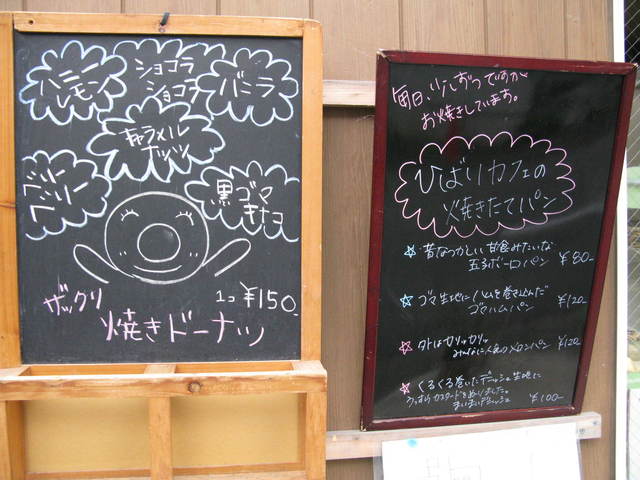 ハニー
レモン
ショコラ
ショコラ
バニラ
キャラメル
ナッツ
ベリー
ベリー
ベリー
黒ゴマ
きなコ
ザックリ
1コ ¥150
焼きドーナツ
毎日、少しずつですが
お焼きしています。
ひばりカフェの
焼きたてパン
昔なつかしい 甘食みたいな
玉子ボーロパン ¥80-
ゴマ生地にハムを巻き込んだ
ゴマハムパン ¥120-
外はカリッカリッ
みんなに人気のメロンパン ¥120
くるくる巻いたデニッシュ生地に
うっすらカスタードをぬりました。
まいまいデニッシュ ¥100-